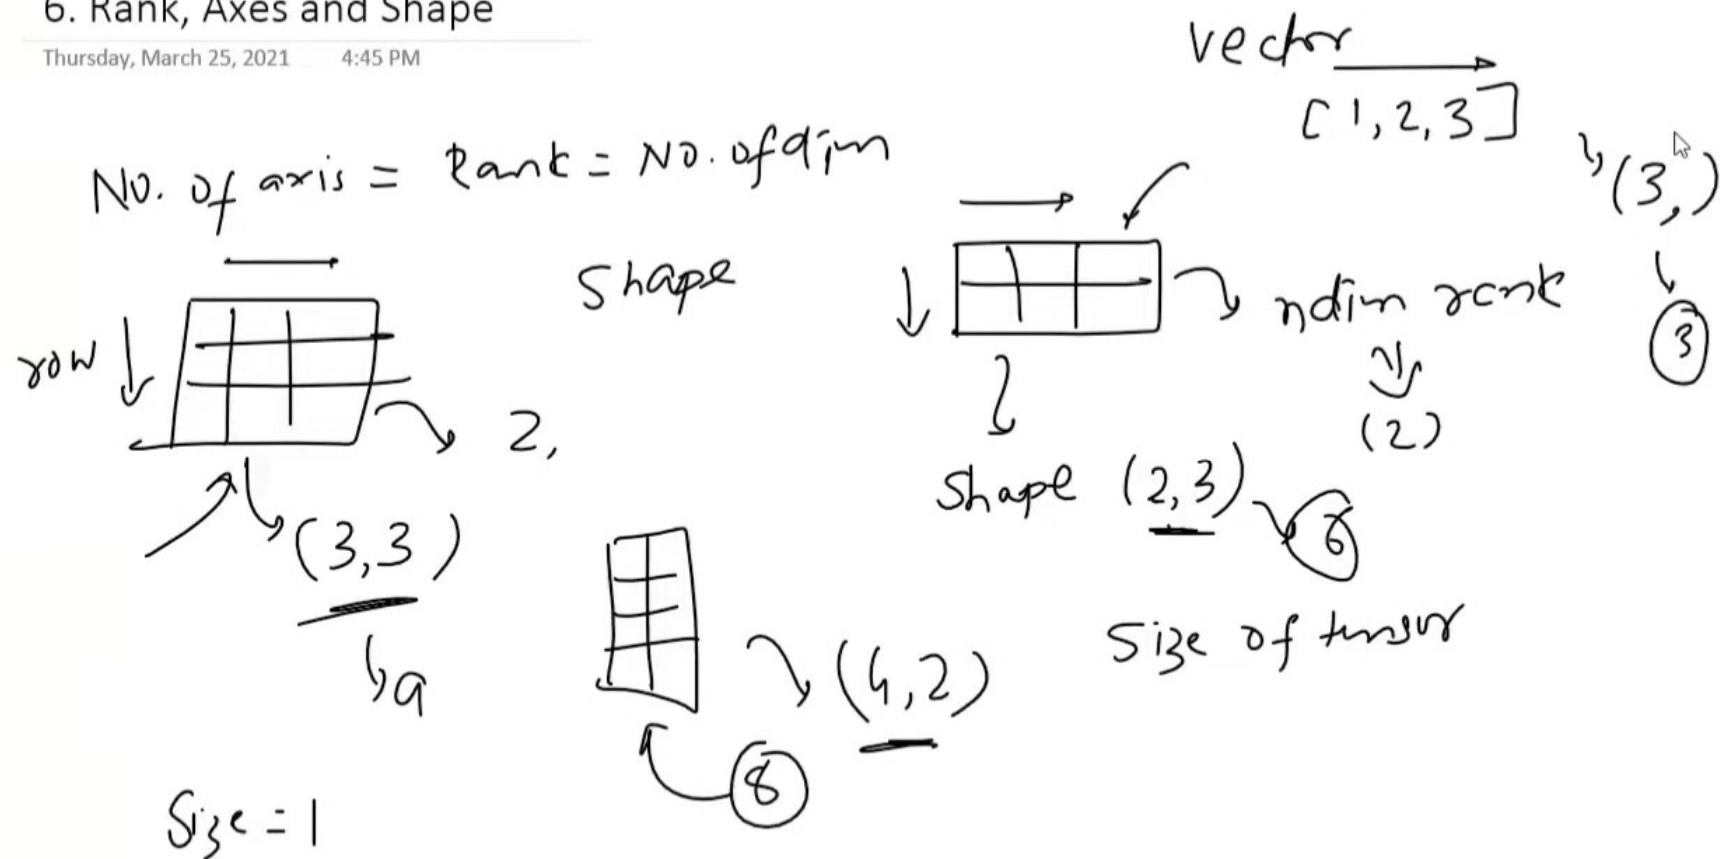 6. Rank, Axes and Shape
Thursday, March 25, 2021 4:45 PM
vector
[1,2,3]
(3,)
3
No. of axis = Rank = No. of dim
Shape
row
2,
(3,3)
9
ndim rank
(2)
Shape (2,3)
6
Size of tensor
(4,2)
8
Size = 1